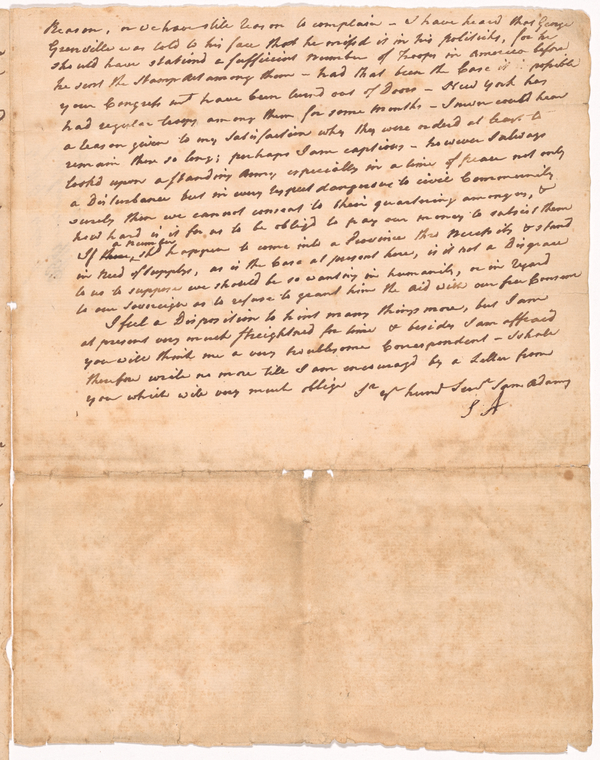 Reason, or we have still reason to complain - I have heard that George
Grenville was told to his face that he missd it in his politicks, for he
should have stationd a sufficient number of troops in America before
he sent the Stamp Act among them - had that been the Case it is possible
your Congress wd have been turnd out of Doors - New York has
had regular troops among them for some months - I never could hear
a reason given to my satisfaction why they were orderd at least to
remain there so long; perhaps I am captious - however I always
lookd upon a standing Army especially in a time of peace not only
a Disturbance but in every respect dangerous to civil Community
surely then we cannot consent to their quartering among us, &
how hard is it for us to be obligd to pay our money to subsist them
If a number shd happen to come into a Province thro Necessity & stand
in Need of supplys, as is the Case at present here, is it not a Disgrace
to us to suppose we should be so wanting in humanity, or in regard
to our Sovereign as to refuse to grant him the aid with our free Consent
I feel a Disposition to hint many things more, but I am
at present very much streightned for time & besides I am affraid
you will think me a very troublesome Correspondent - I shall
therefore write no more till I am encouragd by a Letter from
you which will very much oblige Sr yr humb Servt Sam Adams
S A